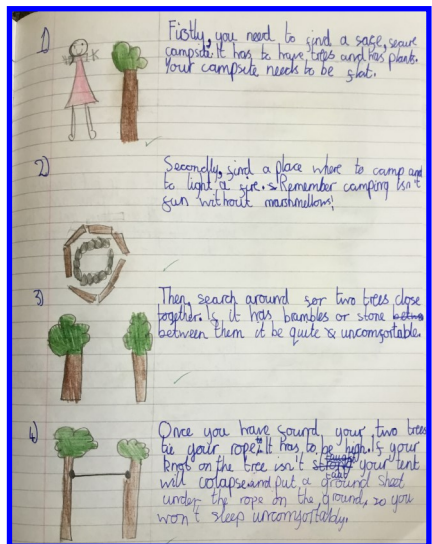 1) Firstly, you need to find a safe, secure
campsite it has to have, trees and has plants.
Your campsite needs to be flat.
2) Secondly, find a place where to camp and
to light a fire. Remember camping isn't
fun without marshmellows!
3) Then, search around for two trees close
together. If it has brambles or stone
between them it be quite uncomfortable.
4) Once you have found your two trees
tie your rope. It has to be high. If your
knot on the tree isn't your tent
will colapse and put a ground sheet
under the rope on the ground, so you
won't sleep uncomfortably.